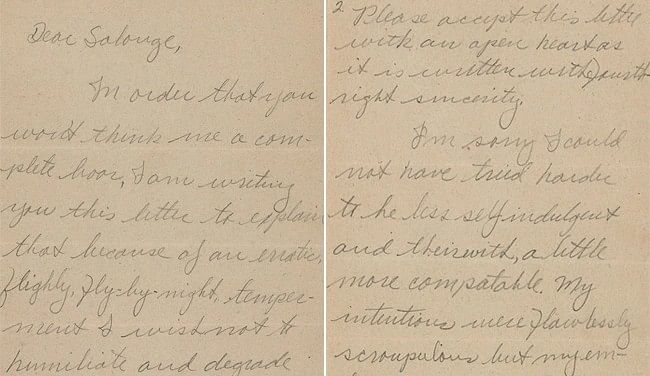 Dear Salouge,
In order that you
won't think me a com-
plete boor, I am writing
you this letter to explain
that because of an erratic,
flighly, fly-by-night, temper-
ment I wish not to
humiliate and degrade
2. Please accept this letter
with an open heart as
it is written with forth-
right sincerity.
I'm sorry I could
not have tried harder
to be less self indulgent
and therewith, a little
more compatable. My
intentions were flawlessly
scroupulous but my em-